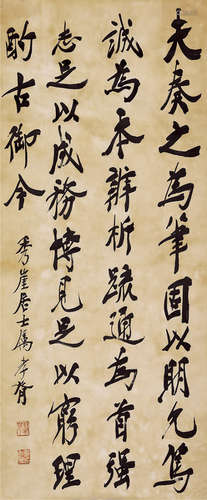 夫奏之為筆固以明允篤
誠為本辨析疏通為首强
志足以成務博見足以窮理
酌古御今
秀崖居士屬孝胥